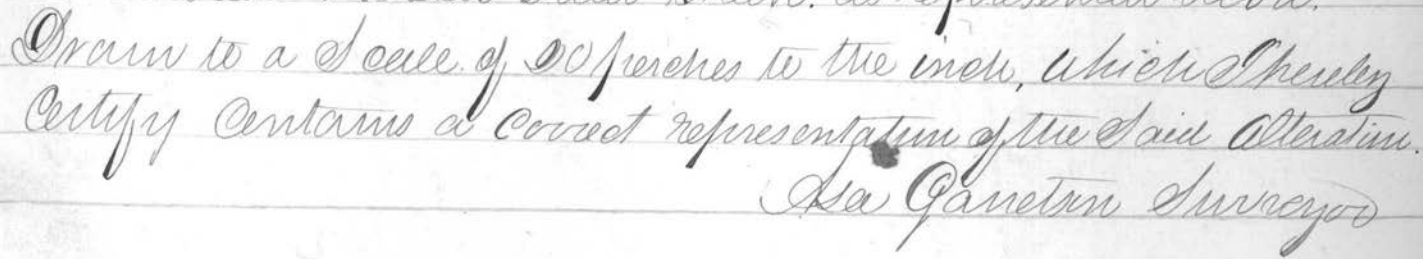 as represented above.
Drawn to a Scale of 20 perches to the inch, which I hereby
Certify Contains a Correct representation of the Said Alteration.
Asa Garretson Surveyor